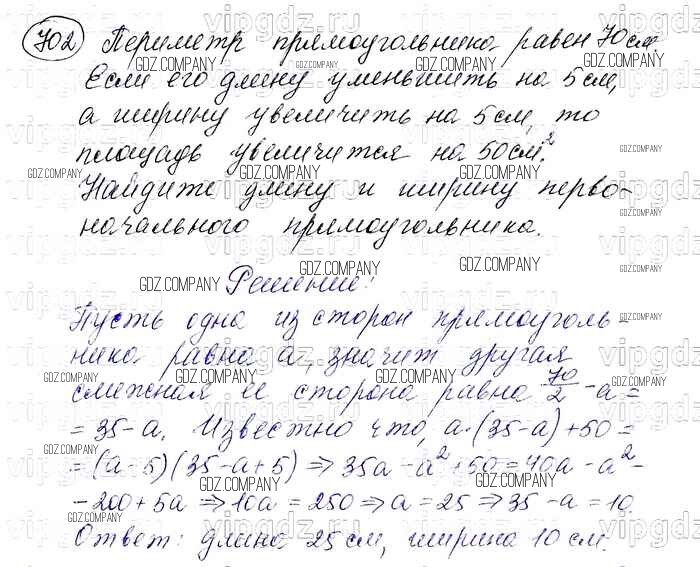 702 Периметр прямоугольника равен 70 см.
Если его длину уменьшить на 5 см,
а ширину увеличить на 5 см, то
площадь увеличится на 50 см².
Найдите длину и ширину перво-
начального прямоугольника.
Решение:
Пусть одна из сторон прямоуголь-
ника равна a, значит другая
смежная ее сторона равна 70/2 - a =
= 35 - a. Известно что, a·(35-a)+50 =
= (a-5)(35-a+5) ⇒ 35a - a² + 50 = 40a - a² -
- 200 + 5a ⇒ 10a = 250 ⇒ a = 25 ⇒ 35 - a = 10.
Ответ: длина 25 см, ширина 10 см.